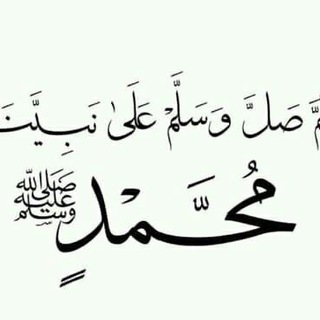 مَّ صَلَّ وَسَلَّمْ عَلَىٰ نَبِيَّنَ
مُحَمَّدٍ ﷺ